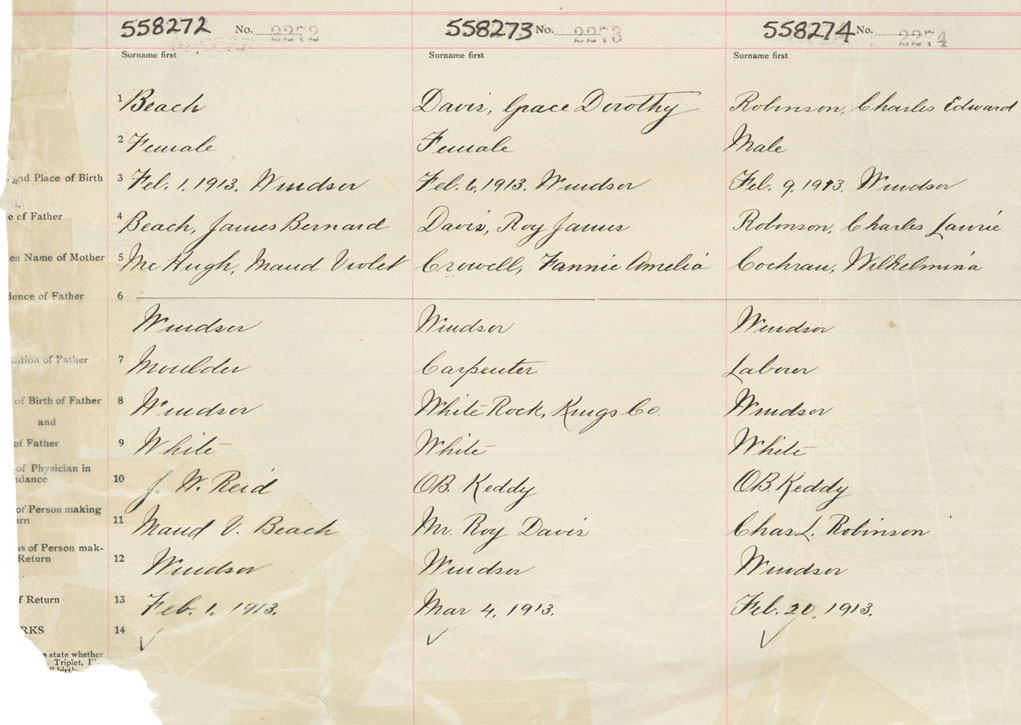 558272 No. 2272 558273 No. 2273 558274 No. 2274
Surname first Surname first Surname first
1 Beach Davis, Grace Dorothy Robinson, Charles Edward
2 Female Female Male
and Place of Birth 3 Feb. 1, 1913. Windsor Feb. 6, 1913. Windsor Feb. 9, 1913. Windsor
e of Father 4 Beach, James Bernard Davis, Roy James Robinson, Charles Lawrie
en Name of Mother 5 McHugh, Maud Violet Crowell, Fannie Amelia Cochran, Wilhelmina
dence of Father 6
Windsor Windsor Windsor
ation of Father 7 Moulder Carpenter Laborer
of Birth of Father 8 Windsor White Rock, Kings Co. Windsor
and
of Father 9 White White White
of Physician in
dance 10 J. W. Reid OB. Keddy OB Keddy
of Person making
rn 11 Maud V. Beach Mr. Roy Davis Chas L. Robinson
ss of Person mak-
Return 12 Windsor Windsor Windsor
f Return 13 Feb. 1, 1913. Mar 4, 1913. Feb. 20, 1913.
RKS 14 ✓ ✓ ✓
state whether
Triplet,